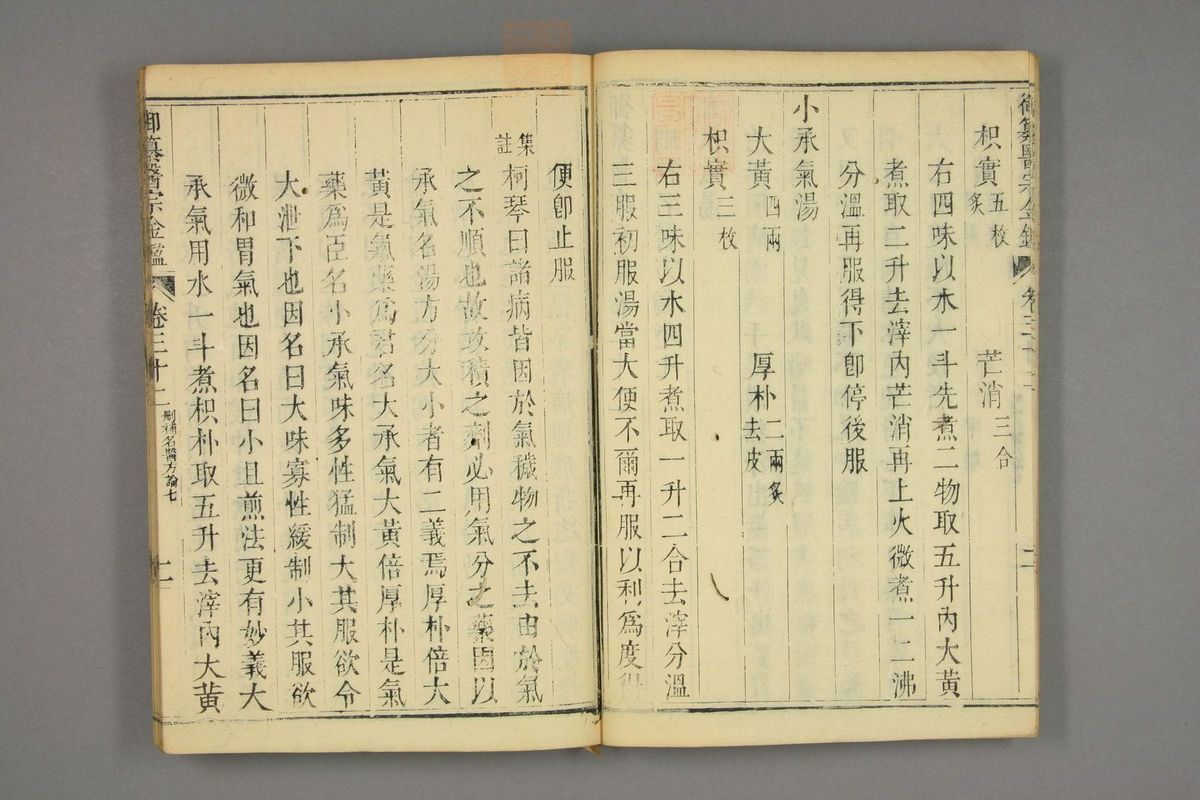 御纂醫宗金鑑 卷三十二 二
枳實五枚炙 芒消三合
右四味以水一斗先煮二物取五升內大黃
煮取二升去滓內芒消再上火微煮一二沸
分溫再服得下卽停後服
小承氣湯
大黃四兩 厚朴二兩炙去皮
枳實三枚
右三味以水四升煮取一升二合去滓分溫
三服初服湯當大便不爾再服以利爲度得
便卽止服
集註柯琴曰諸病皆因於氣穢物之不去由於氣
之不順也故攻積之劑必用氣分之藥因以
承氣名湯方分大小者有二義焉厚朴倍大
黃是氣藥爲君名大承氣大黃倍厚朴是氣
藥爲臣名小承氣味多性猛制大其服欲令
大泄下也因名曰大味寡性緩制小其服欲
微和胃氣也因名曰小且煎法更有妙義大
承氣用水一斗煮枳朴取五升去滓內大黃
御纂醫宗金鑑 卷三十二 刪補名醫方論七 二